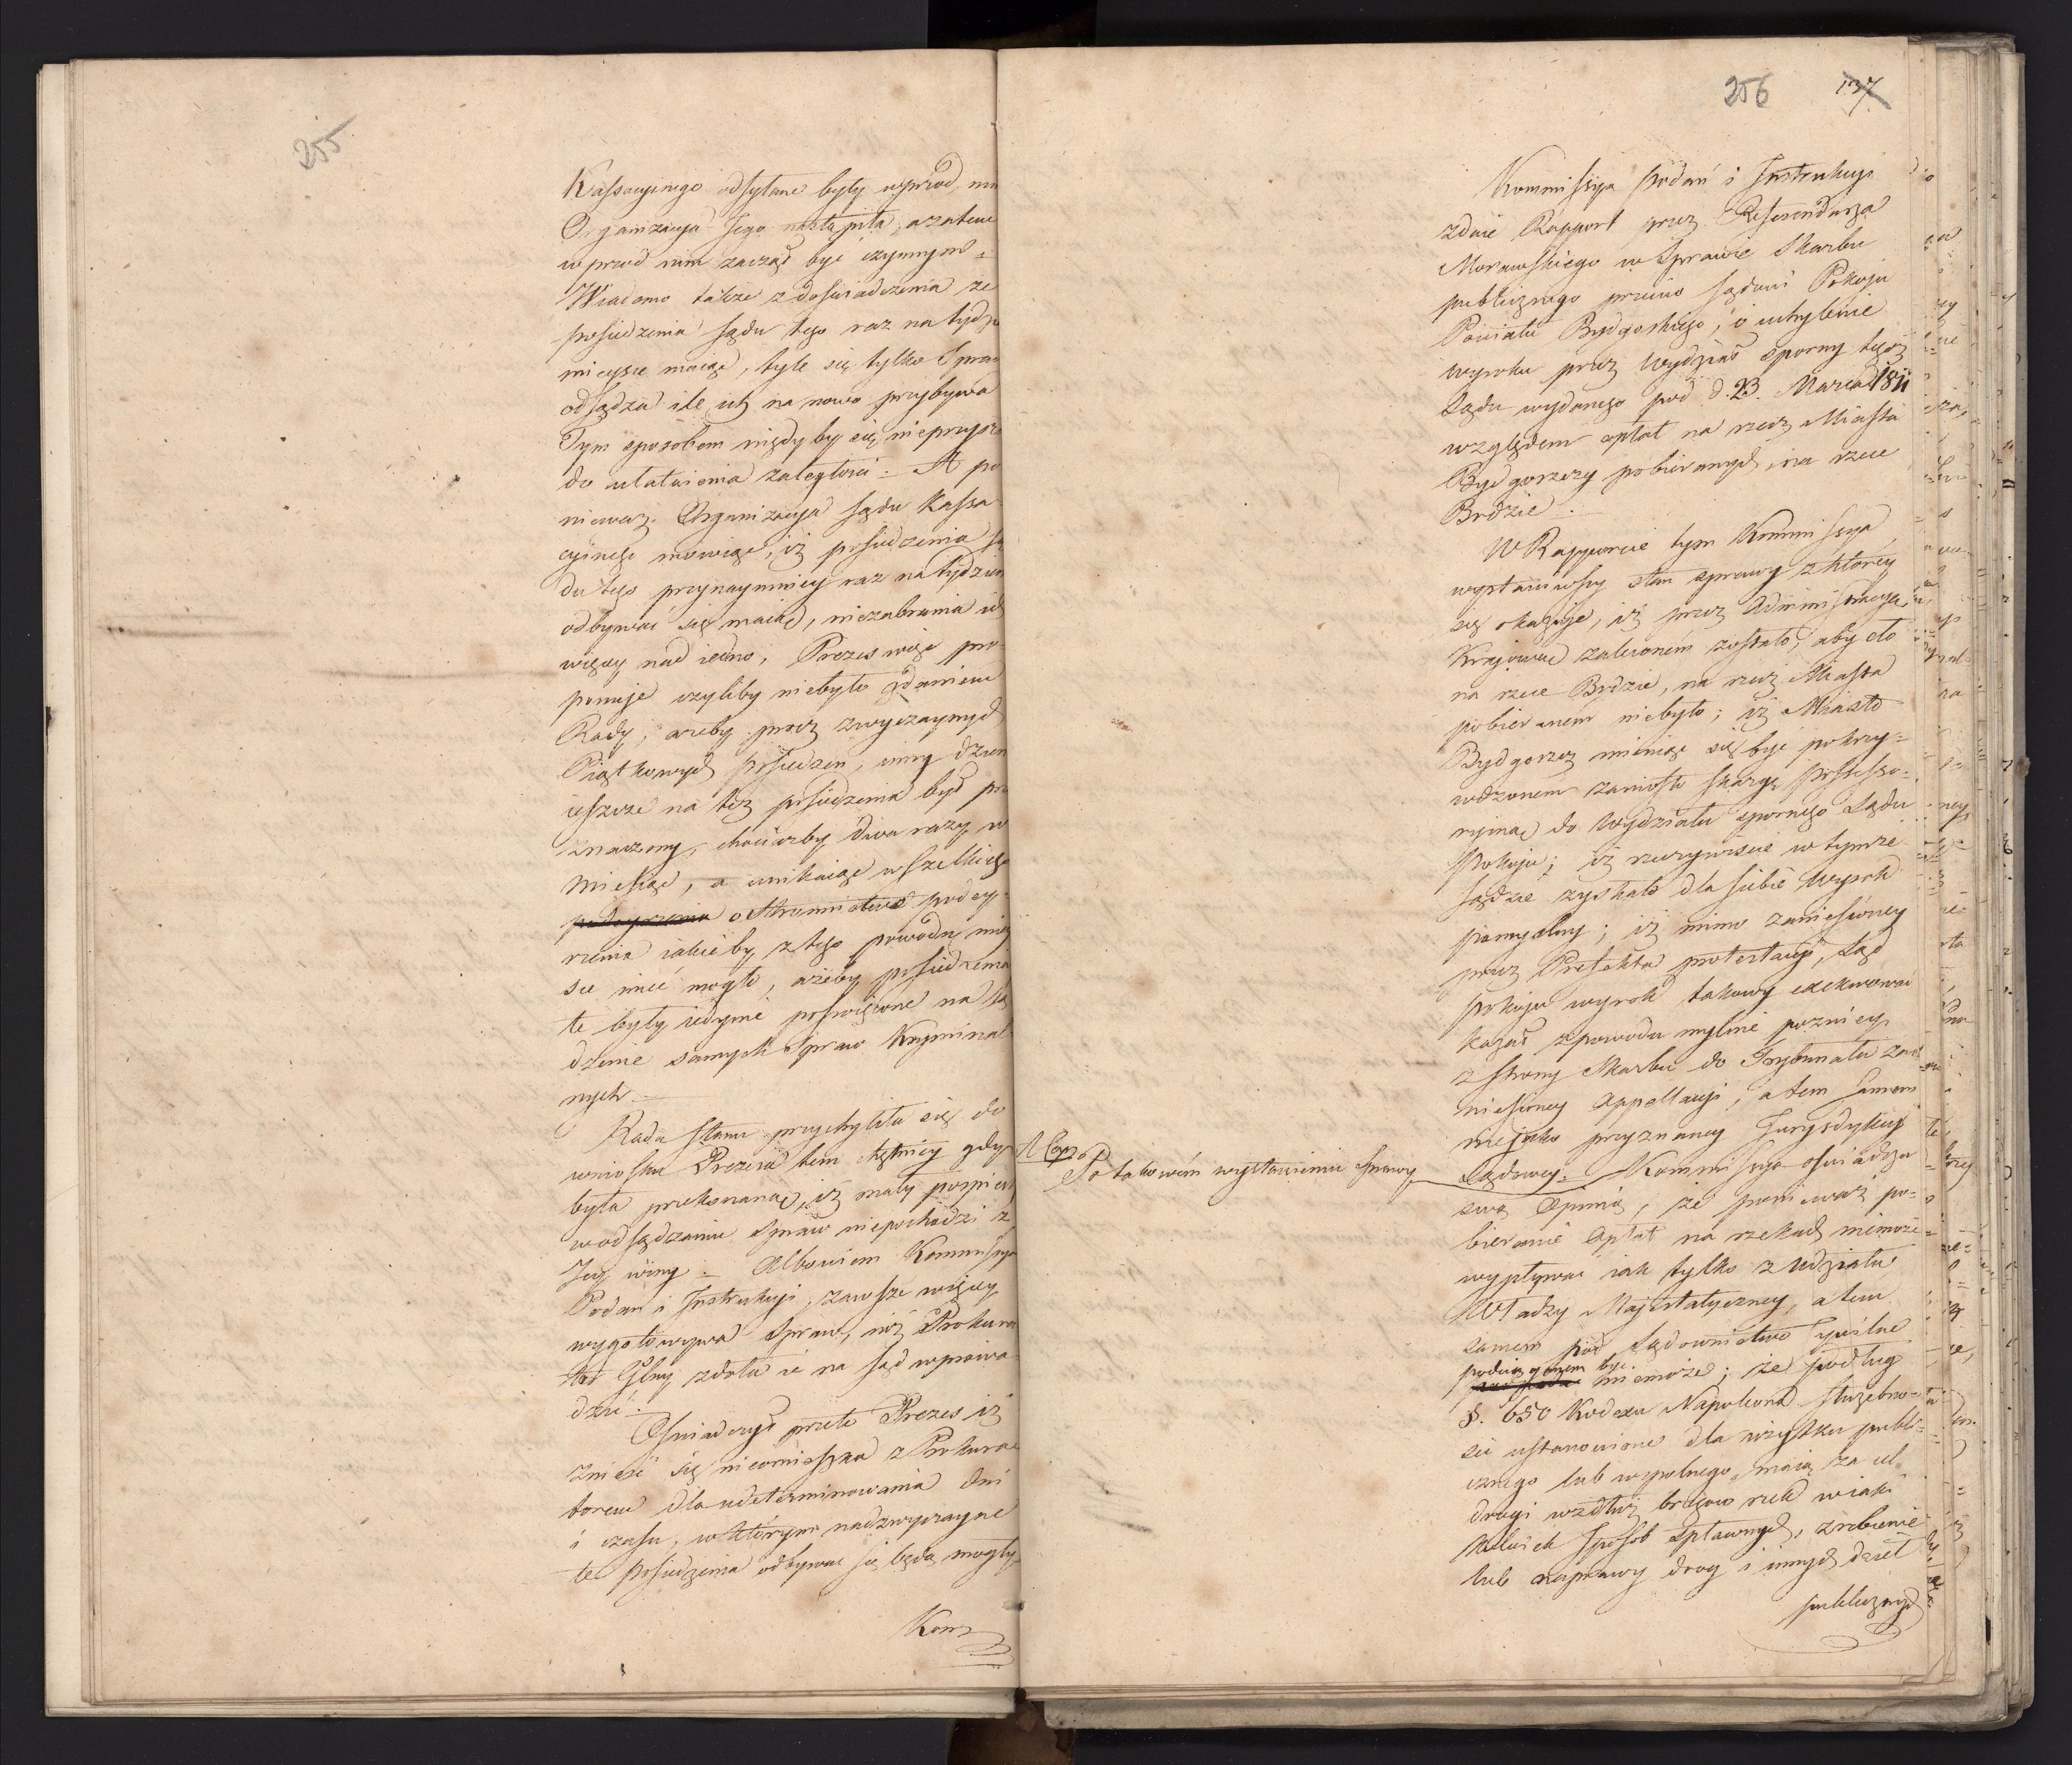 255
Kassacyinego odsyłane były wprzód, nim
Organizacya Jego nastąpiła, a zatem
wprzód nim zaczął być czynnym =
Wiadomo także z doświadczenia że
posiedzenia Sądu tego raz na tydz
mieysce maiąc, tyle się tylko Spraw
odsądza ile ich na nowo przybywa
Tym sposobem nigdy by się nieprzysz
do ułatwienia zaległości. A po
nieważ Organizacya Sądu Kassa
cyinego mowiąc, iż posiedzenia Są
du tego przynaymniey raz na tydzien
odbywać się maią, niezabrania ich
więcey nad iedno, Prezes więc pro
ponuje czyliby niebyło zdaniem
Rady, ażeby przez zwyczaynych
Piątkowych posiedzeń, inny dzien
ieszcze na też posiedzenia był prze
znaczony, chociażby dwa razy w
Miesiąc, a unikaiąc wszelkiego
podeyrzenia o Stronnictwo podey
rzenia iakieby z tego powodu miey
sce mieć mogło, ażeby posiedzenia
te były iedynie poświęcone na są
dzenie samych Spraw Kryminal
nych
Rada Stanu przychyliła się do
wniosku Prezesa tem chętniey gdy
była przekonaną, iż mały pospiech
w odsądzaniu Spraw niepochodzi z
Jey winy. Albowiem Kommissya
Podań i Instrukcyi, zawsze więcey
wygotowywa Spraw, niż Prokura
tor Głny zdoła ie na Sąd wprowa
dzić.
Oświadczył przeto Prezes iż
znieść się nieomieszka z Prokura
torem dla udeterminowania dni
i czasu, w którym nadzwyczayne
te posiedzenia odbywać się będą mogły.
Kom
256 137
Kommissya Podań i Instrukcyi
zdaie Rapport przez Referendarza
Morawskiego w Sprawie Skarbu
publicznego przeciw Sądowi Pokoju
Powiatu Bydgoskiego, o uchylenie
wyroku przez Wydział sporny tegoż
Sądu wydanego pod d. 23. Marca 1811
względem opłat na rzecz Miasta
Bydgoszczy pobieranych, na rzece
Brdzie.
W Rapporcie tym Kommissya,
wystawiwszy stan sprawy z którey
się okazuje, iż przez Administracyą
Krajową zaleconém zostało, aby cło
na rzece Brdzie, na rzecz Miasta
pobieraném niebyło; iż Miasto
Bydgoszcz mieniąc się być pokrzy=
wdzonem zaniosło skargę possesso=
ryiną do Wydziału spornego Sądu
Pokoju; iż rzeczywiście w tymże
Sądzie zyskało dla siebie Wyrok
pomyślny; iż mimo zaniesioney
przez Prefekta protestacyi, Sąd
Pokoju wyrok takowy exekwować
kazał z powodu mylnie pozniey
z strony Skarbu do Trybunału zan
niesioney Appellacyi, a tem samem
niejako przyznaney Jurysdykcyi
Sądowey. Kommissya oświadcza
NB.
Po takowém wystawieniu Sprawy
swą Opinią, że ponieważ po=
bieranie Opłat na rzekach niemoże
wypływać iak tylko z Udziału
Władzy Majestatyczney, a tem
samem pod Sądownictwo Cywilne
podciągniętem być
niemoże; że podług
§. 650 Kodexu Napoleona Służebno=
ści ustanowione dla użytku publi=
cznego lub wspolnego, maią za cel
drogi wzdłuż brzegow rzek w iaki
kolwiek sposob spławnych, zrobienie
lub naprawy drog i innych dzieł
publicznych